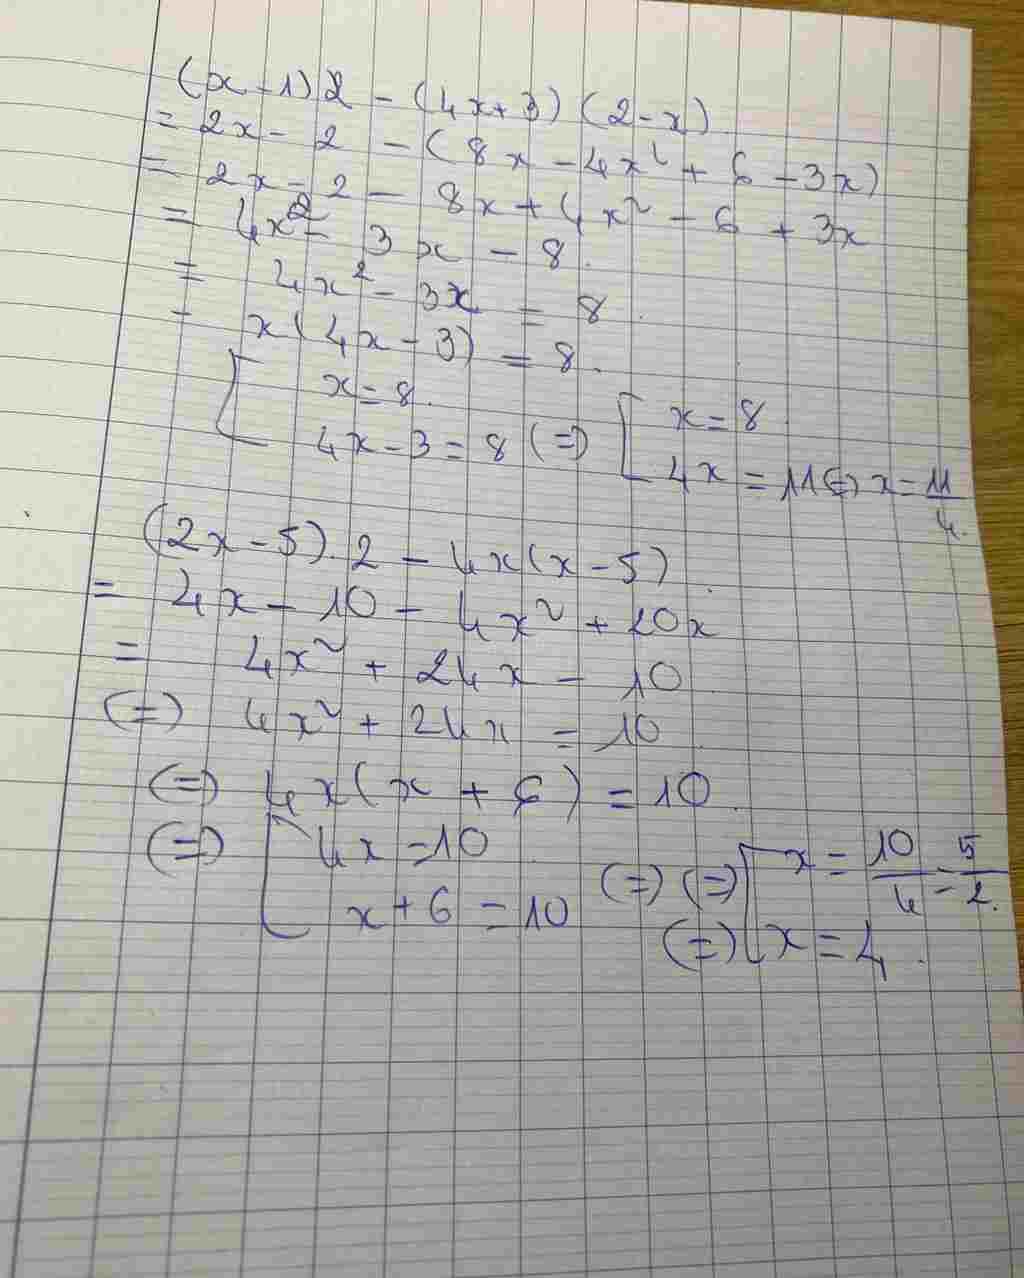 (x - 1) 2 - (4x + 3) (2 - x)
= 2x - 2 - (8x - 4x² + 6 - 3x)
= 2x - 2 - 8x + 4x² - 6 + 3x
= 4x² - 3x - 8.
= 4x² - 3x = 8.
- x(4x - 3) = 8.
[ x = 8. [ x = 8
4x - 3 = 8 (=) 4x = 11 (=) x = 11/4.
(2x - 5).2 - 4x(x - 5)
= 4x - 10 - 4x² + 20x
= 4x² + 24x - 10
(=) 4x² + 24x = 10.
(=) 4x(x + 6) = 10.
(=) [ 4x = 10 (=) (=) [ x = 10/4 = 5/2.
x + 6 = 10 (=) x = 4.